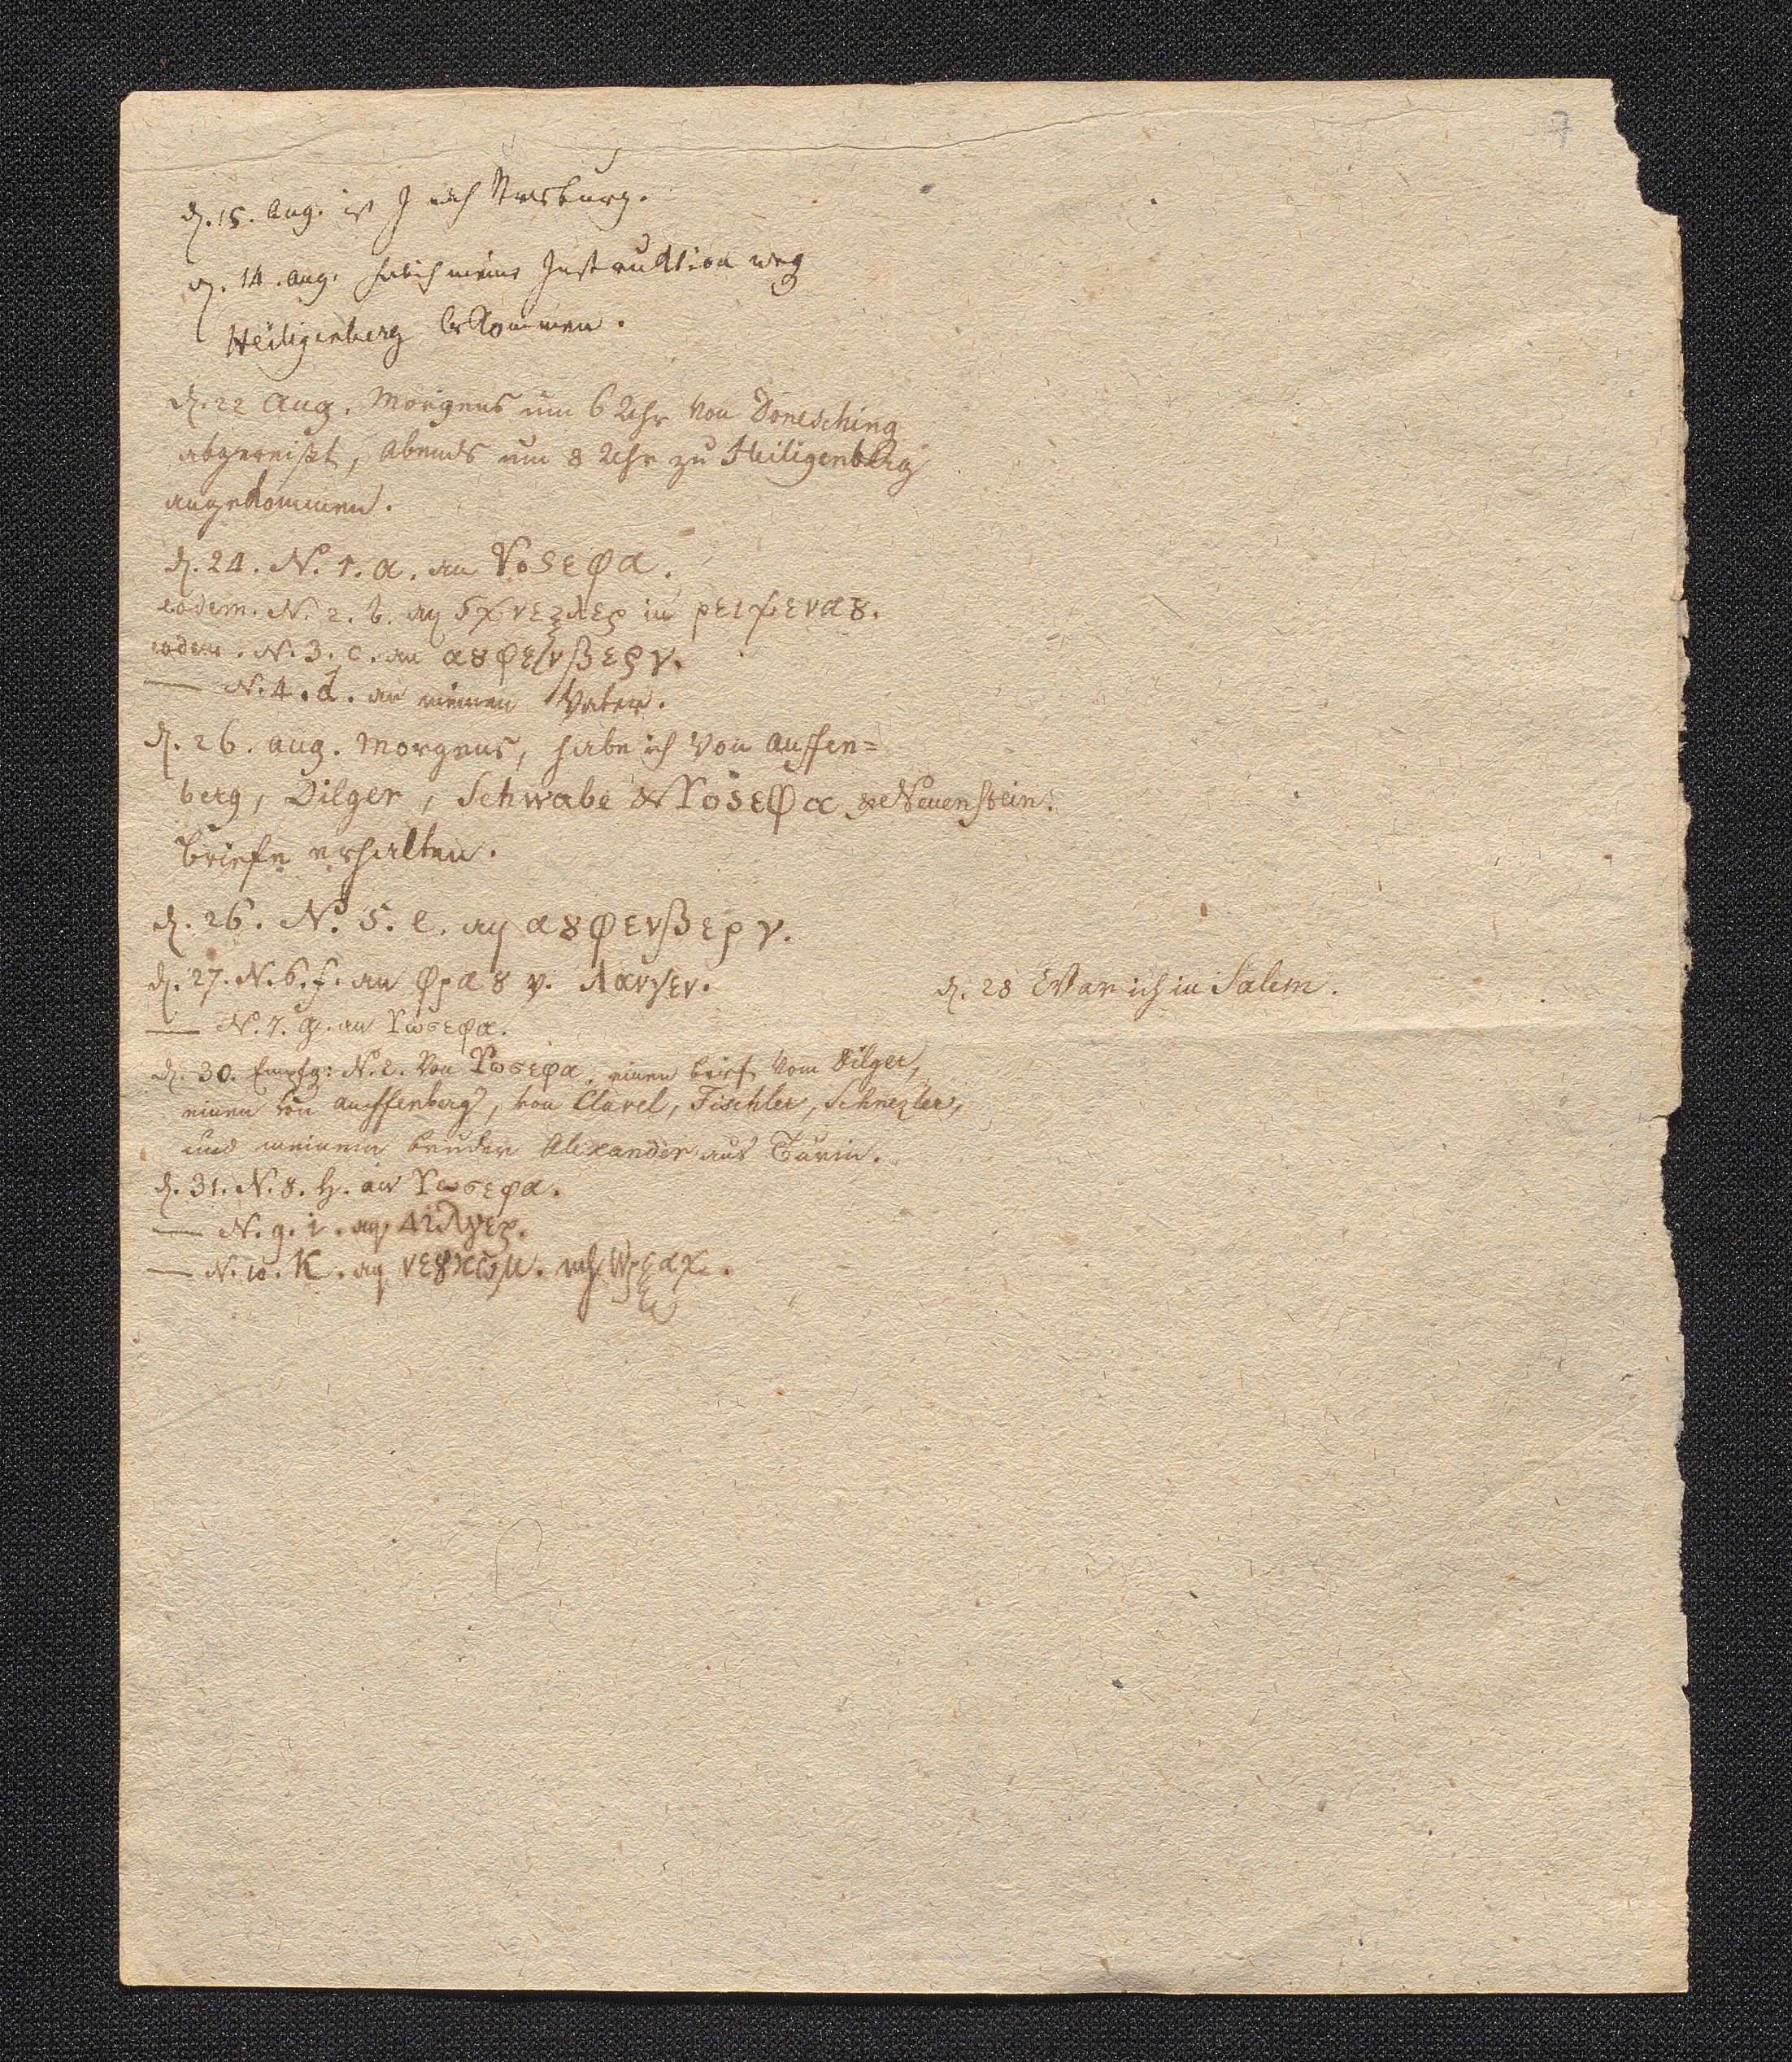 7
d. 15. Aug. ist J nach Strasburg.
d. 14. Aug. hab ich meine Instruktion weg
Heiligenberg bekommen.
d. 22 Aug. Morgens um 6 Uhr von Donesching
abgereißt, Abends um 8 Uhr zu Heiligenberg
angekommen.
d. 24. N. 1. a. an Υοσεφα.
eodem. N. 2. b. an Σχνεζλερ in ρειχενα8.
eodem. N. 3. c. an α8φενβεργ.
— N. 4. d. an meinen Vater.
d. 26. Aug. Morgens, habe ich von Auffen=
berg, Dilger, Schwabe & Υοσεφα & Neuenstein.
Briefe erhalten.
d. 26. N. 5. e. an α8φενβεργ.
d. 27. N. 6. f. an φρα8 v. Λανγεν.
d. 28 War ich in Salem.
— N. 7. g. an Υωσεφα.
d. 30. Empfg: N. 2. von Υωσεφα, einen Brief vom Dilger,
einen von Auffenberg, von Clavel, Fischler, Schnezler,
und meinem Bruder Alexander aus Turin.
d. 31. N. 8. h. an Υωσεφα.
— N. 9. i. an Διλγερ.
— N. 10. K. an νε8κωμ.